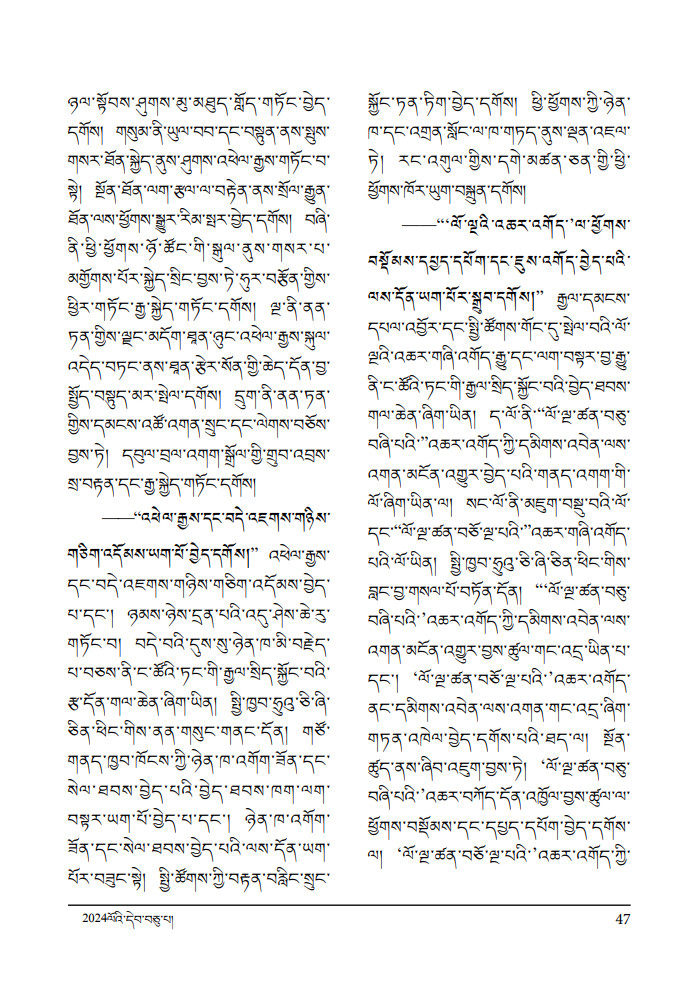 ཉལ་སྟོབས་ཤུགས་མུ་མཐུད་གློད་གཏོང་བྱེད་
དགོས། གསུམ་ནི་ཡུལ་བབ་དང་བསྟུན་ནས་སྤུས་
གསར་ཐོན་སྐྱེད་ནུས་ཤུགས་འཕེལ་རྒྱས་གཏོང་བ་
སྟེ། སྔོན་ཐོན་ལག་རྩལ་ལ་བརྟེན་ནས་སྲོལ་རྒྱུན་
ཐོན་ལས་ཕྱོགས་སྒྱུར་རིམ་སྤར་བྱེད་དགོས། བཞི་
ནི་ཕྱི་ཕྱོགས་ཉོ་ཚོང་གི་སྒུལ་ནུས་གསར་པ་
མགྱོགས་པོར་སྐྱེད་སྲིང་བྱས་ཏེ་ཧུར་བརྩོན་གྱིས་
ཕྱིར་གཏོང་རྒྱ་སྐྱེད་གཏོང་དགོས། ལྔ་ནི་ནན་
ཏན་གྱིས་ལྗང་མདོག་ཐན་ཉུང་འཕེལ་རྒྱས་སྐུལ་
འདེད་བཏང་ནས་ཐན་རྩེར་སོན་གྱི་ཆེད་དོན་བྱ་
སྤྱོད་བསྟུད་མར་སྤེལ་དགོས། དྲུག་ནི་ནན་ཏན་
གྱིས་དམངས་འཚོ་འགན་སྲུང་དང་ལེགས་བཅོས་
བྱས་ཏེ། དབུལ་བྲལ་འགག་སྒྲོལ་གྱི་གྲུབ་འབྲས་
སྲ་བརྟན་དང་རྒྱ་སྐྱེད་གཏོང་དགོས།
——“འཕེལ་རྒྱས་དང་བདེ་འཇགས་གཉིས་
གཅིག་འདོམས་ཡག་པོ་བྱེད་དགོས།” འཕེལ་རྒྱས་
དང་བདེ་འཇགས་གཉིས་གཅིག་འདོམས་བྱེད་
པ་དང་། ཉམས་ཉེས་དྲན་པའི་འདུ་ཤེས་ཆེ་རུ་
གཏོང་བ། བདེ་བའི་དུས་སུ་ཉེན་ཁ་མི་བརྗེད་
པ་བཅས་ནི་ང་ཚོའི་ཏང་གི་རྒྱལ་སྲིད་སྐྱོང་བའི་
རྩ་དོན་གལ་ཆེན་ཞིག་ཡིན། སྤྱི་ཁྱབ་ཧྲུའུ་ཅི་ཞི་
ཅིན་ཕིང་གིས་ནན་གསུང་གནང་དོན། གཙོ་
གནད་ཁྱབ་ཁོངས་ཀྱི་ཉེན་ཁ་འགོག་ཟོན་དང་
སེལ་ཐབས་བྱེད་པའི་བྱེད་ཐབས་ཁག་ལག་
བསྟར་ཡག་པོ་བྱེད་པ་དང་། ཉེན་ཁ་འགོག་
ཟོན་དང་སེལ་ཐབས་བྱེད་པའི་ལས་དོན་ཡག་
པོར་བཟུང་སྟེ། སྤྱི་ཚོགས་ཀྱི་བརྟན་བརླིང་སྲུང་
སྐྱོང་ཏན་ཏིག་བྱེད་དགོས། ཕྱི་ཕྱོགས་ཀྱི་ཉེན་
ཁ་དང་འགྲན་སློང་ལ་ཁ་གཏད་ནུས་ལྡན་འཇལ་
ཏེ། རང་འགུལ་གྱིས་དགེ་མཚན་ཅན་གྱི་ཕྱི་
ཕྱོགས་ཁོར་ཡུག་བསྐྲུན་དགོས།
——“‘ལོ་ལྔའི་འཆར་འགོད་’ལ་ཕྱོགས་
བསྡོམས་དཔྱད་དཔོག་དང་ཇུས་འགོད་བྱེད་པའི་
ལས་དོན་ཡག་པོར་སྒྲུབ་དགོས།” རྒྱལ་དམངས་
དཔལ་འབྱོར་དང་སྤྱི་ཚོགས་གོང་དུ་སྤེལ་བའི་ལོ་
ལྔའི་འཆར་གཞི་འགོད་རྒྱུ་དང་ལག་བསྟར་བྱ་རྒྱུ་
ནི་ང་ཚོའི་ཏང་གི་རྒྱལ་སྲིད་སྐྱོང་བའི་བྱེད་ཐབས་
གལ་ཆེན་ཞིག་ཡིན། ད་ལོ་ནི་“ལོ་ལྔ་ཚན་བཅུ་
བཞི་པའི་”འཆར་འགོད་ཀྱི་དམིགས་འབེན་ལས་
འགན་མངོན་འགྱུར་བྱེད་པའི་གནད་འགག་གི་
ལོ་ཞིག་ཡིན་ལ། སང་ལོ་ནི་མཇུག་བསྡུ་བའི་ལོ་
དང་“ལོ་ལྔ་ཚན་བཅོ་ལྔ་པའི་”འཆར་གཞི་འགོད་
པའི་ལོ་ཡིན། སྤྱི་ཁྱབ་ཧྲུའུ་ཅི་ཞི་ཅིན་ཕིང་གིས་
བླང་བྱ་གསལ་པོ་བཏོན་དོན། “‘ལོ་ལྔ་ཚན་བཅུ་
བཞི་པའི་’འཆར་འགོད་ཀྱི་དམིགས་འབེན་ལས་
འགན་མངོན་འགྱུར་བྱས་ཚུལ་གང་འདྲ་ཡིན་པ་
དང་། ‘ལོ་ལྔ་ཚན་བཅོ་ལྔ་པའི་’འཆར་འགོད་
ནང་དམིགས་འབེན་ལས་འགན་གང་འདྲ་ཞིག་
གཏན་འཁེལ་བྱེད་དགོས་པའི་ཐད་ལ། སྔོན་
ཚུད་ནས་ཞིབ་འཇུག་བྱས་ཏེ། ‘ལོ་ལྔ་ཚན་བཅུ་
བཞི་པའི་’འཆར་བཀོད་དོན་འཁྱོལ་བྱས་ཚུལ་ལ་
ཕྱོགས་བསྡོམས་དང་དཔྱད་དཔོག་བྱེད་དགོས་
ལ། ‘ལོ་ལྔ་ཚན་བཅོ་ལྔ་པའི་’འཆར་འགོད་ཀྱི་
2024ལོའི་དེབ་བཅུ་པ།
47